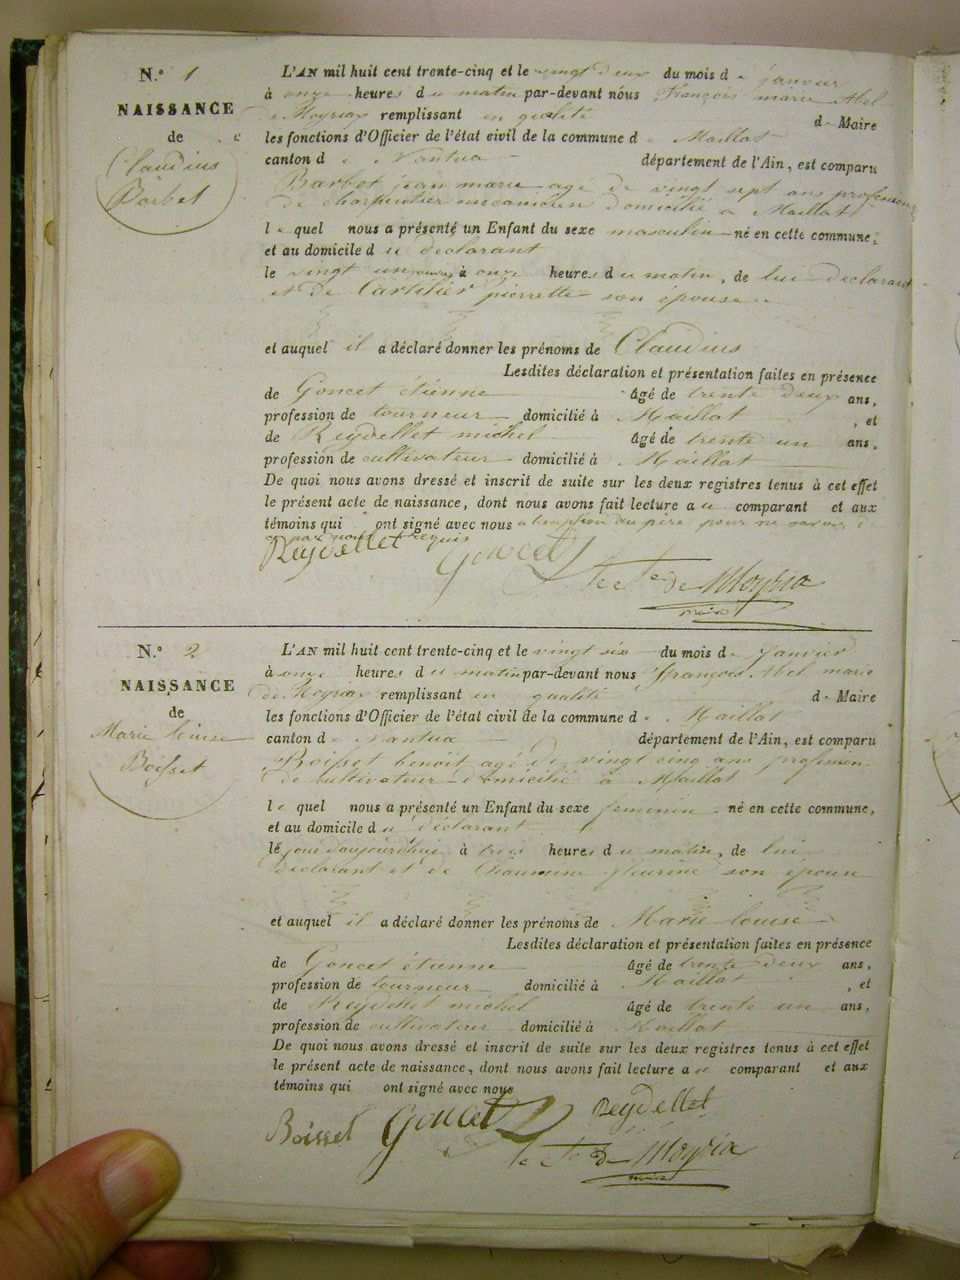 N.° 1
NAISSANCE
de
Claudius
Barbet
L'AN mil huit cent trente-cinq et le vingt deux du mois de janvier
à onze heures du matin par-devant nous François marie Abel
de Moyria remplissant en qualité de Maire
les fonctions d'Officier de l'état civil de la commune de Maillat
canton de Nantua département de l'Ain, est comparu
Barbet jean marie agé de vingt sept ans profession
de charpentier mecanicien domicilié à Maillat
lequel nous a présenté un Enfant du sexe masculin né en cette commune,
et au domicile du déclarant
le vingt un à onze heures du matin, de lui déclarant
et de Cartilier pierrette son épouse
et auquel il a déclaré donner les prénoms de Claudius
Lesdites déclaration et présentation faites en présence
de Goncet étienne âgé de trente deux ans,
profession de tourneur domicilié à Maillat, et
de Reydellet michel âgé de trente un ans,
profession de cultivateur domicilié à Maillat
De quoi nous avons dressé et inscrit de suite sur les deux registres tenus à cet effet
le présent acte de naissance, dont nous avons fait lecture au comparant et aux
témoins qui ont signé avec nous a l'exception du père pour ne savoir
requis
Reydellet Goncet
de Moyria
maire
N.° 2
NAISSANCE
de
Marie louise
Boisset
L'AN mil huit cent trente-cinq et le vingt six du mois de janvier
à onze heures du matin par-devant nous François Abel marie
de Moyria remplissant en qualité de Maire
les fonctions d'Officier de l'état civil de la commune de Maillat
canton de Nantua département de l'Ain, est comparu
Boisset benoit agé de vingt cinq ans profession
de cultivateur domicilié à Maillat
lequel nous a présenté un Enfant du sexe feminin né en cette commune,
et au domicile du déclarant
le jour d'aujourd'hui à trois heures du matin, de lui
déclarant et de fleurine son épouse
et auquel il a déclaré donner les prénoms de Marie louise
Lesdites déclaration et présentation faites en présence
de Goncet étienne âgé de trente deux ans,
profession de tourneur domicilié à Maillat, et
de Reydellet michel âgé de trente un ans,
profession de cultivateur domicilié à Maillat
De quoi nous avons dressé et inscrit de suite sur les deux registres tenus à cet effet
le présent acte de naissance, dont nous avons fait lecture au comparant et aux
témoins qui ont signé avec nous
Boisset Goncet Reydellet
de Moyria
maire